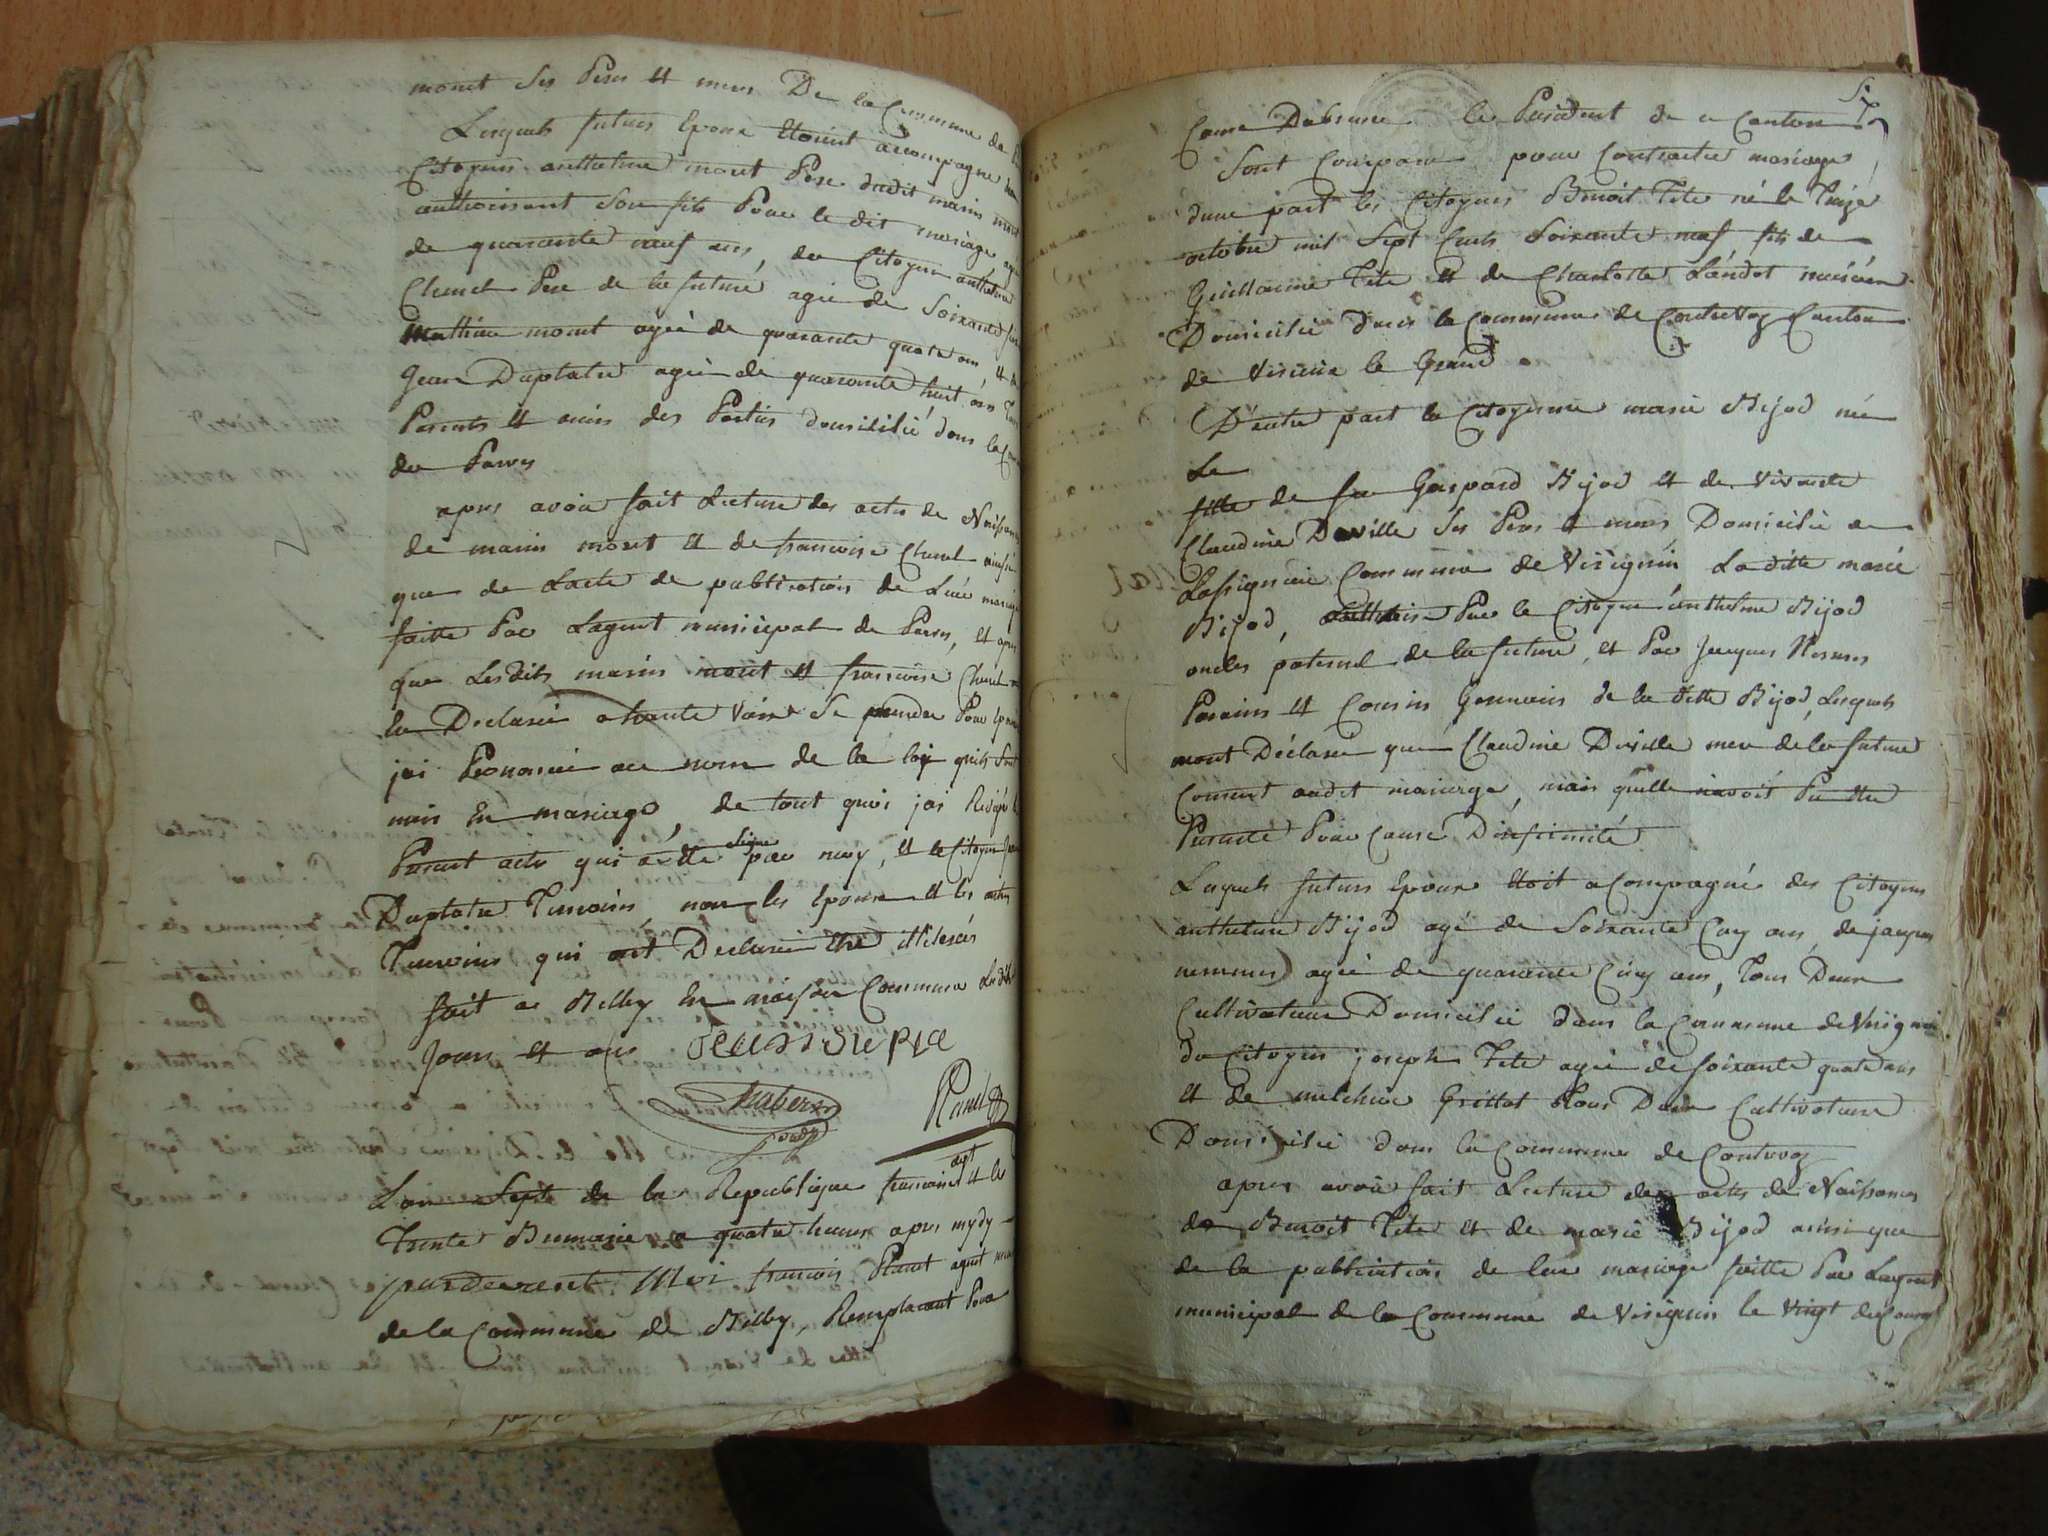 monet ses Peres et meres De la Commune de
Lesquels futurs Epoux Etoient accompagné
Citoyens anthelme monet Pere dudit marin monet
authorisant son fils Pour le dit mariage agé
de quarante neuf ans, du Citoyen anthelme
Chenel Pere de la future, agé de Soixante
Mathieu monet agée de quarante quatre ans, et de
Jean Duplatre agée de quarante huit ans
Parents et amis des Parties domicilié dans la
de Parves
apres avoir fait Lecture des actes de Naissance
de marin monet et de francoise Chenel ainsi
que de Lacte de publication de Leur mariage
faitte Par Lagent municipal de Parves, et apres
que Lesdits marin monet et francoise Chenel
la Declaré a haute Voix Se prendre Pour Epoux
jai Prononcé au nom de la loix quils Sont
unis En mariage, de tout quoi jai Redigé le
Present acte qui a été signé par moy, et le Citoyen Jean
Duplatre Temoins non les Epoux et les autres
Temoins qui ont Declaré être illiterés
fait a Billy En maison Commune Ledit
Jours et ans
Planet
Lan Sept de la Republique francoise et le
Trente Brumaire a quatre heures apres mydy
pardevant Moi francois Planet agent
de la Commune de Billy, Remplacant Pour
Cause Dabsence le President de ce Canton
Sont Comparu pour Contracter mariage
dune part les Citoyens Benoit Tete né le Treize
octobre mil Sept Cents Soixante neuf fils de
Guillaume Tete et de Charlotte Landot
Domicilié dans la Commune de Contrevoz Canton
de Virieu le Grand
D'autre part la Citoyenne marie Bijod née
Le
fille de feu Gaspard Bijod et de Vivante
Claudine Deville Ses Peres et meres Domicilié a
Lassignieu Commune de Virignin Laditte marie
Bijod, Par le Citoyen anthelme Bijod
oncles paternel de la future, et Par Jacques
Parains et Cousin Germains de la ditte Bijod, Lesquels
mont Déclaré que Claudine Deville mere de la future
Consent audit mariage, mais quelle navoit Pu être
Presente Pour Cause Dinfirmité
Lesquels futurs Epoux Etoit acompagné des Citoyens
anthelme Bijod agé de Soixante Cinq ans, de jacques
agée de quarante Cinq ans, Tous Deux
Cultivateur Domicilié dans la Commune de Virignin
du Citoyen joseph Tete agée de soixante quatre ans
et de melchior Grillet Tous Deux Cultivateur
Domicilié dans la Commune de Contrevoz
apres avoir fait Lecture des actes de Naissances
de Benoit Tete et de marie Bijod ainsi que
de la publication de leur mariage faitte Par Lagent
municipal de la Commune de Virignin le vingt du Courant